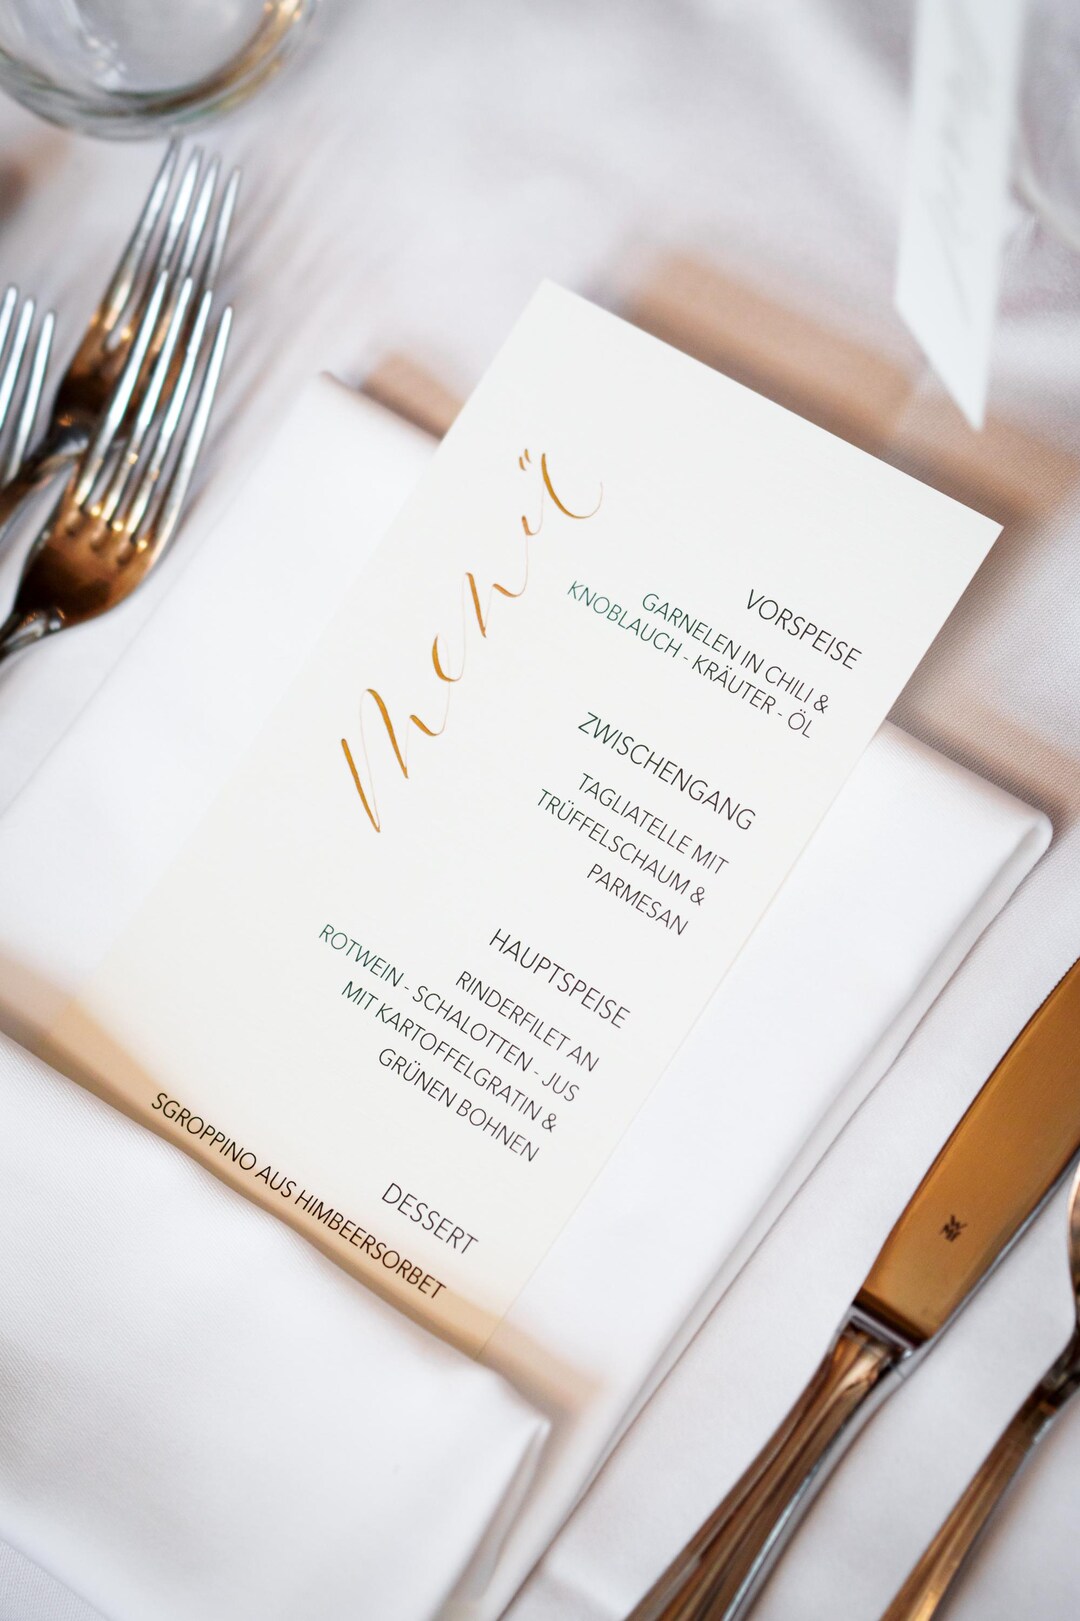 Menü
VORSPEISE
GARNELEN IN CHILI &
KNOBLAUCH - KRÄUTER - ÖL
ZWISCHENGANG
TAGLIATELLE MIT
TRÜFFELSCHAUM &
PARMESAN
HAUPTSPEISE
RINDERFILET AN
ROTWEIN - SCHALOTTEN - JUS
MIT KARTOFFELGRATIN &
GRÜNEN BOHNEN
DESSERT
SGROPPINO AUS HIMBEERSORBET
WMF